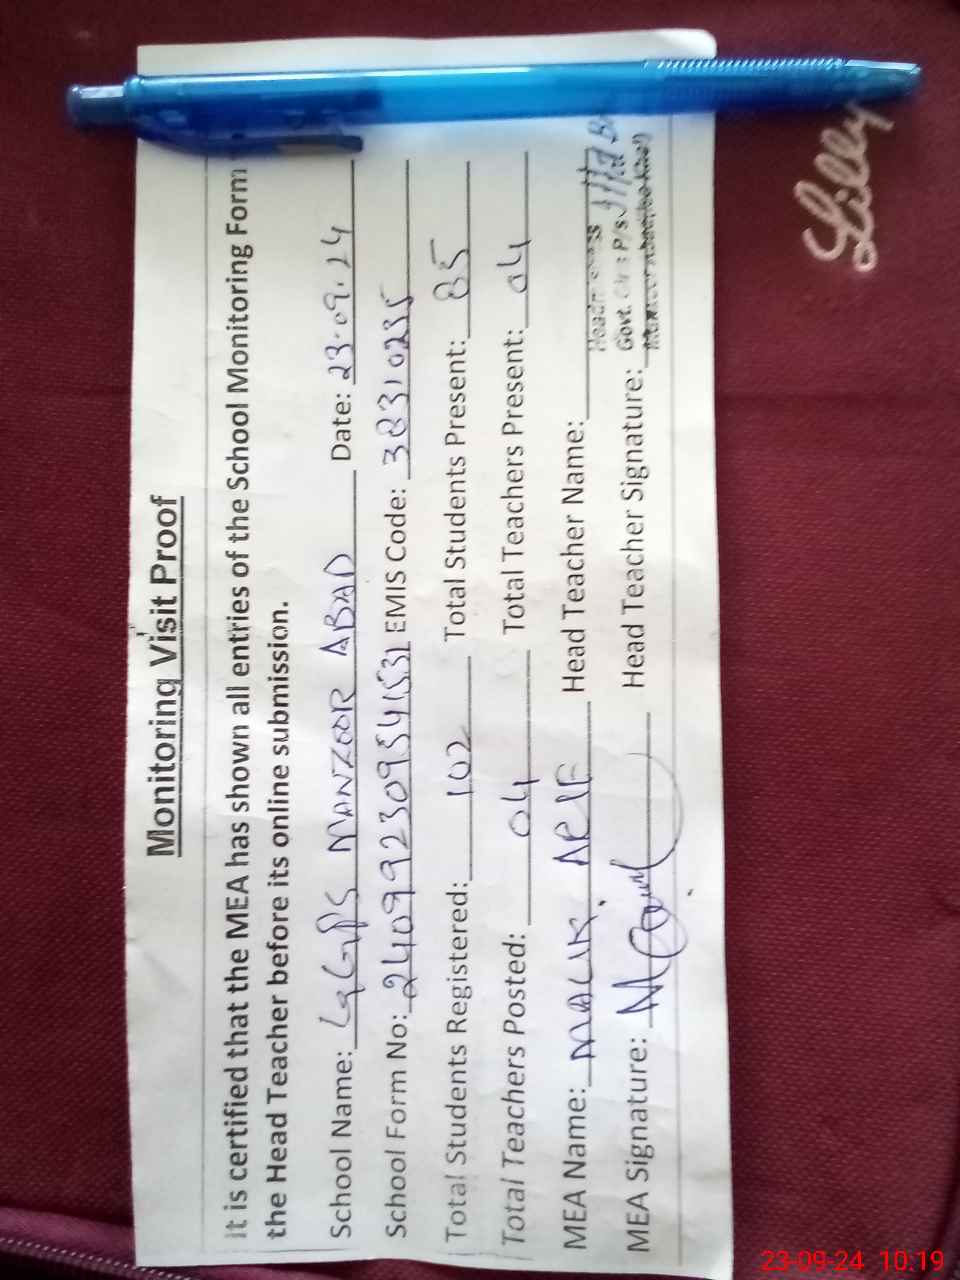 Monitoring Visit Proof
It is certified that the MEA has shown all entries of the School Monitoring Form
the Head Teacher before its online submission.
School Name: GGPS MANZOOR ABAD Date: 23.09.24
School Form No: 240992309541531 EMIS Code: 38310235
Total Students Registered: 102 Total Students Present: 85
Total Teachers Posted: 04 Total Teachers Present: 04
MEA Name: MALIK ARIF Head Teacher Name:
MEA Signature: Head Teacher Signature:
Govt. P/s
Lilly
23-09-24 10:19